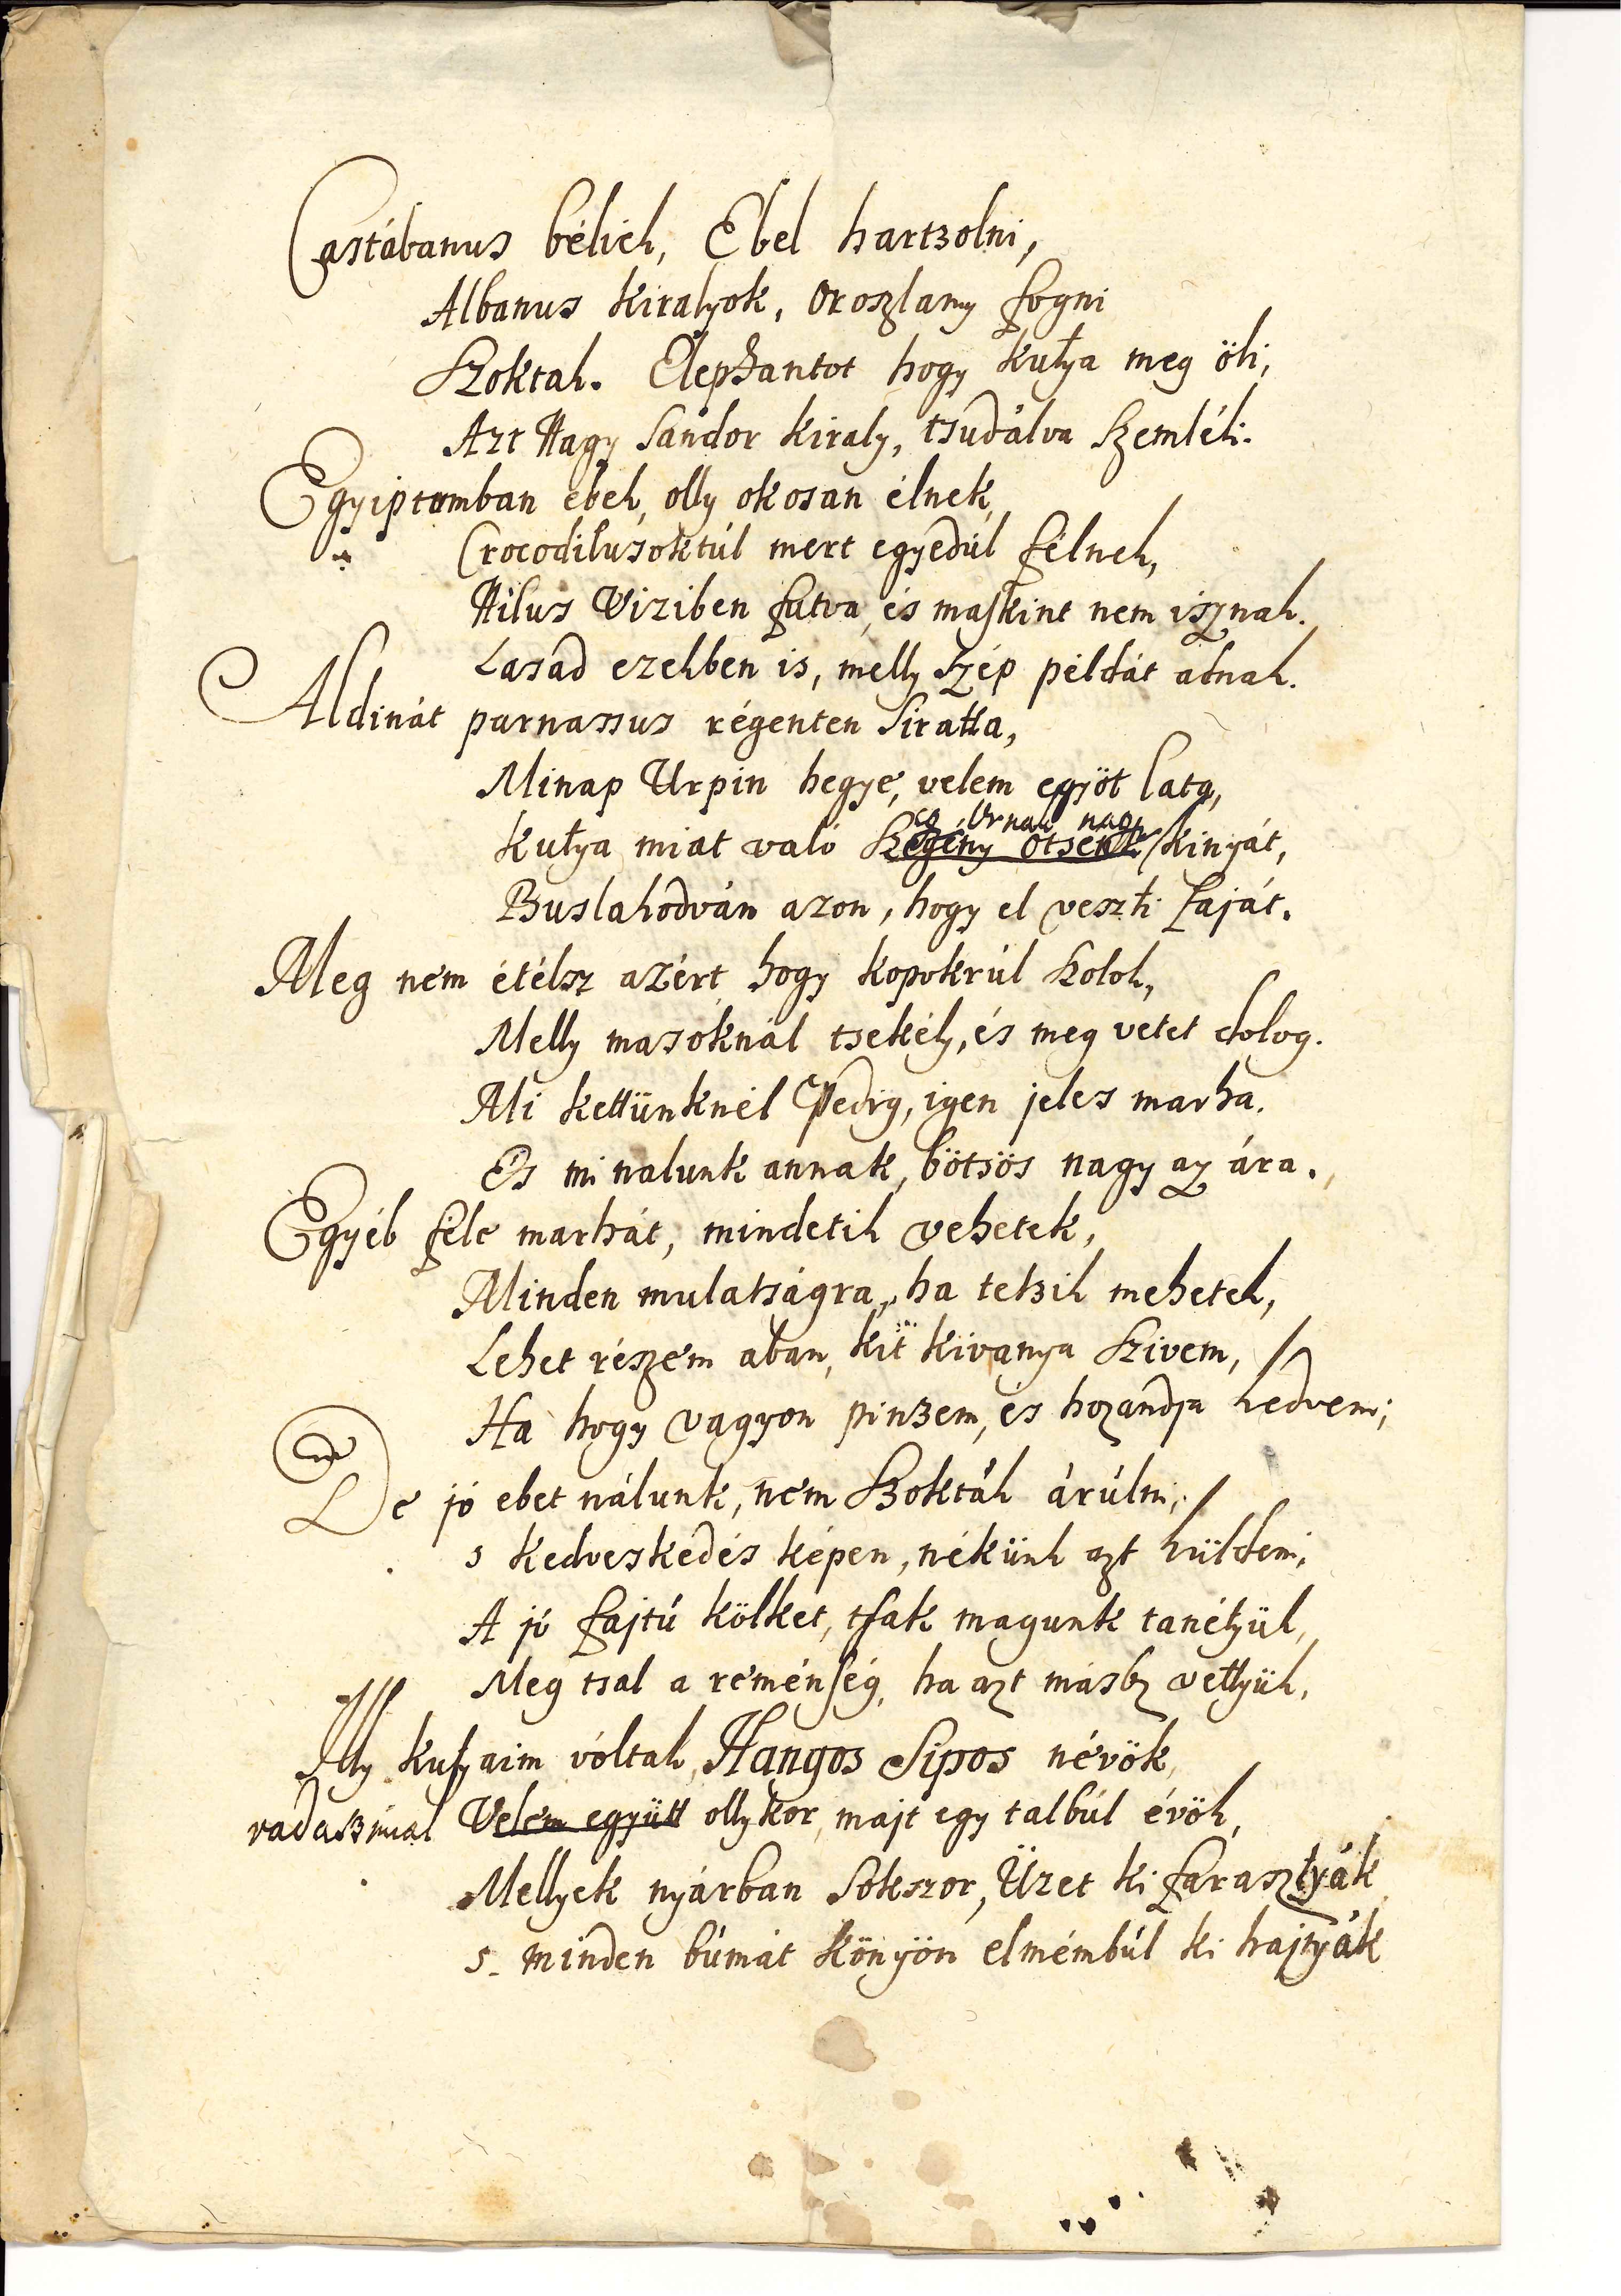 Castábanus béliek, Ebel hartzolni,
Albanus kiralyok, Oroszlany fogni
Szoktak. Elephantot hogy kutya meg öli,
Azt Nagy Sándor kiraly, tsudálva Szemléli.
Egyiptomban ebek, olly okosan élnek,
Crocodilusoktúl mert egyedúl félnek,
Nilus Viziben futva, és maskint nem isznak.
Lasad ezekben is, melly Szép példát adnak.
Aldinát parnassus régenten Siratta,
Minap Urpin hegye, velem egyöt lata,
eg Urnak nagy
Kutya miat való Szegény Otsenk kinyát,
Buslakodván azon, hogy el veszti faját.
Meg nem étélsz azért hogy kopokrúl Szolok,
Melly masoknál tsekély, és meg vetet dolog.
Mi kettünknél Pedig, igen jeles marha.
Es mi nalunk annak, bötsös nagy az ára.
Egyéb fele marhát, mindetik vehetek,
Minden mulatságra, ha tetzik mehetek,
Lehet részem aban, kit kivanya Szivem,
Ha hogy vagyon pinzem, és hozandja kedvem;
De jó ebet nálunk, nem Szoktak árúlni,
s kedveskedés képen, nékünk azt küldeni,
A jó fajtú kölket, tsak magunk tanétyük,
Meg tsal a reménség, ha azt másbz vettyük,
Illy kutyaim vóltak, Hangos Sipos névök,
vadaszimal Velem együtt ollykor, majt egy talbúl évök,
Mellyek nyárban Sokszor, Üzet ki farasztyák
s minden búmat könyön elmémbúl ki hajtyák